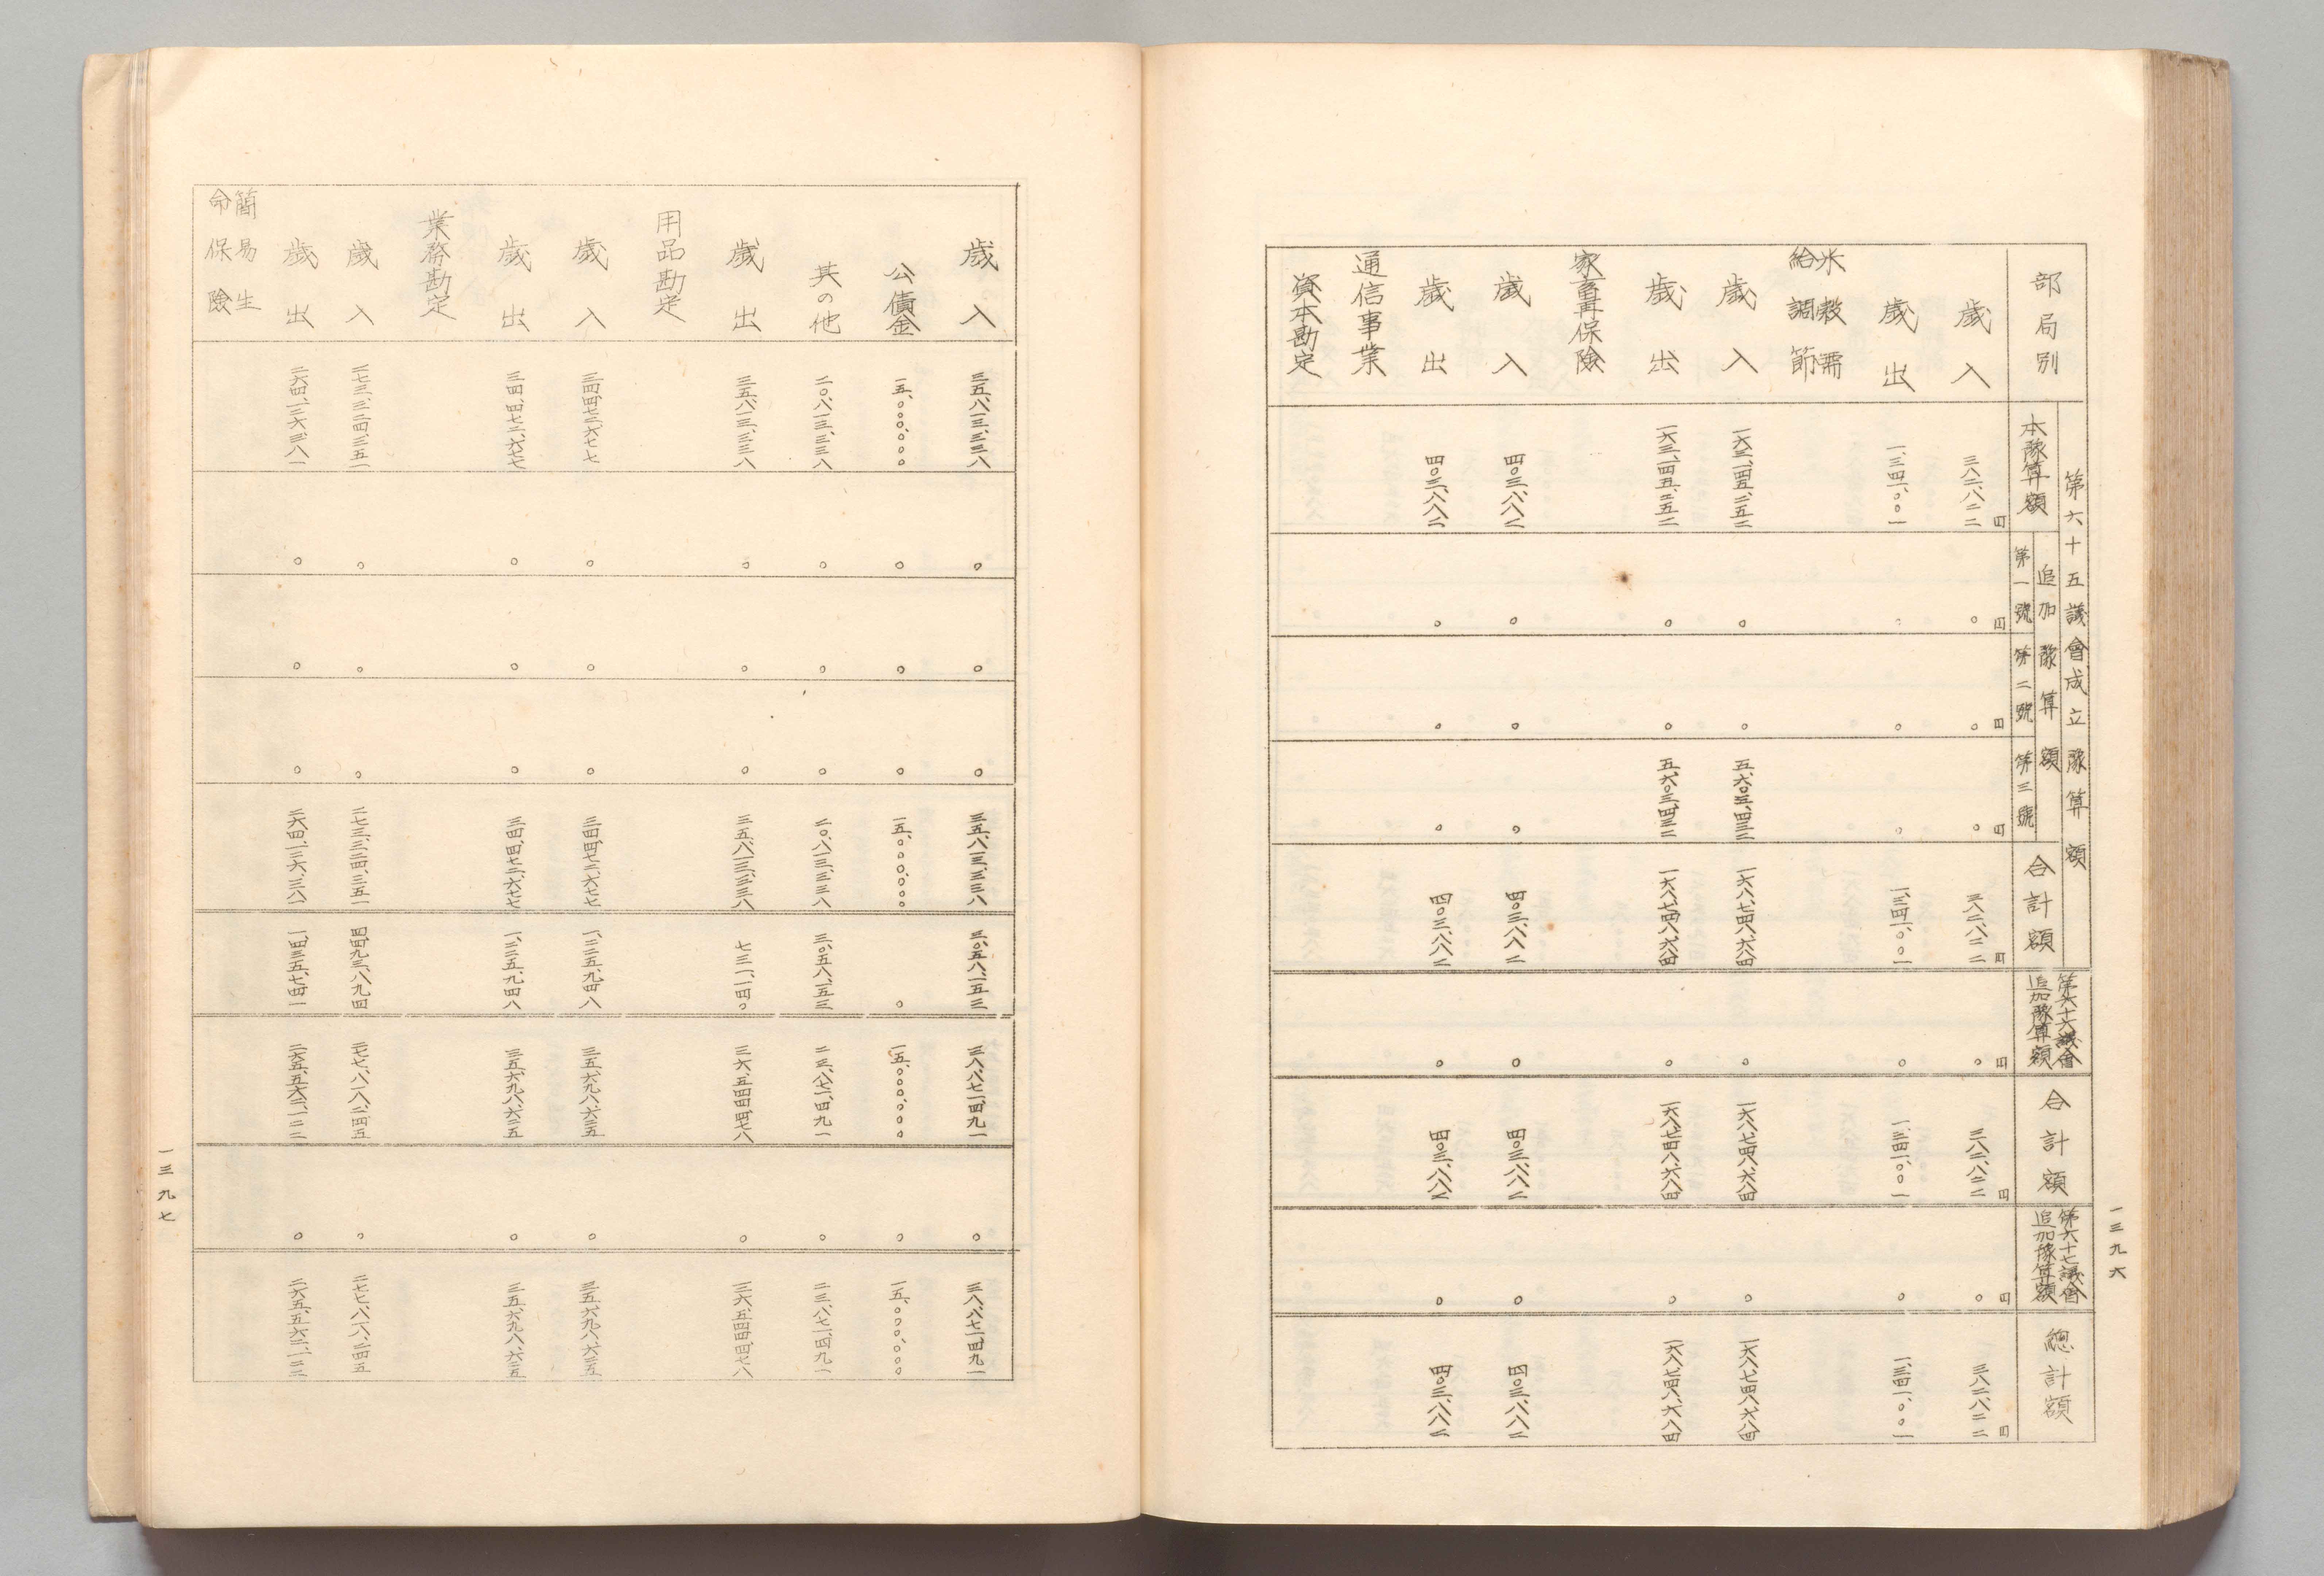 一三九六
第六十五議會成立豫算額
第六十六議會
第六十七議會
追加豫算額
追加豫算額
追加豫算額
部局別
本豫算額
第一號
第二號
第三號
合計額
合計額
總計額
円 円 円 円 円 円 円 円 円
歳入 三八二、八二二 〇 〇 〇 三八二、八二二 〇 三八二、八二二 〇 三八二、八二二
歳出 一、三四一、〇〇一 〇 〇 〇 一、三四一、〇〇一 〇 一、三四一、〇〇一 〇 一、三四一、〇〇一
米穀需
給調節
歳入 一六三、一四五、二五二 〇 〇 五、六〇三、四三二 一六八、七四八、六八四 〇 一六八、七四八、六八四 〇 一六八、七四八、六八四
歳出 一六三、一四五、二五二 〇 〇 五、六〇三、四三二 一六八、七四八、六八四 〇 一六八、七四八、六八四 〇 一六八、七四八、六八四
家畜再保險
歳入 四〇三、八八二 〇 〇 〇 四〇三、八八二 〇 四〇三、八八二 〇 四〇三、八八二
歳出 四〇三、八八二 〇 〇 〇 四〇三、八八二 〇 四〇三、八八二 〇 四〇三、八八二
通信事業
資本勘定
歳入 三五、八一三、三三八 〇 〇 〇 三五、八一三、三三八 三、〇五八、一五三 三八、八七一、四九一 〇 三八、八七一、四九一
公債金 一五、〇〇〇、〇〇〇 〇 〇 〇 一五、〇〇〇、〇〇〇 〇 一五、〇〇〇、〇〇〇 〇 一五、〇〇〇、〇〇〇
其の他 二〇、八一三、三三八 〇 〇 〇 二〇、八一三、三三八 三、〇五八、一五三 二三、八七一、四九一 〇 二三、八七一、四九一
歳出 三五、八一三、三三八 〇 〇 〇 三五、八一三、三三八 七三一、一四〇 三六、五四四、四七八 〇 三六、五四四、四七八
用品勘定
歳入 三四、四七二、六七七 〇 〇 〇 三四、四七二、六七七 一、二二五、九四八 三五、六九八、六二五 〇 三五、六九八、六二五
歳出 三四、四七二、六七七 〇 〇 〇 三四、四七二、六七七 一、二二五、九四八 三五、六九八、六二五 〇 三五、六九八、六二五
業務勘定
歳入 二七三、三二四、三五一 〇 〇 〇 二七三、三二四、三五一 四、四九三、八九四 二七七、八一八、二四五 〇 二七七、八一八、二四五
歳出 二六四、一二六、三八一 〇 〇 〇 二六四、一二六、三八一 一、四三五、七四一 二六五、五六二、一二二 〇 二六五、五六二、一二二
簡易生
命保險
一三九七